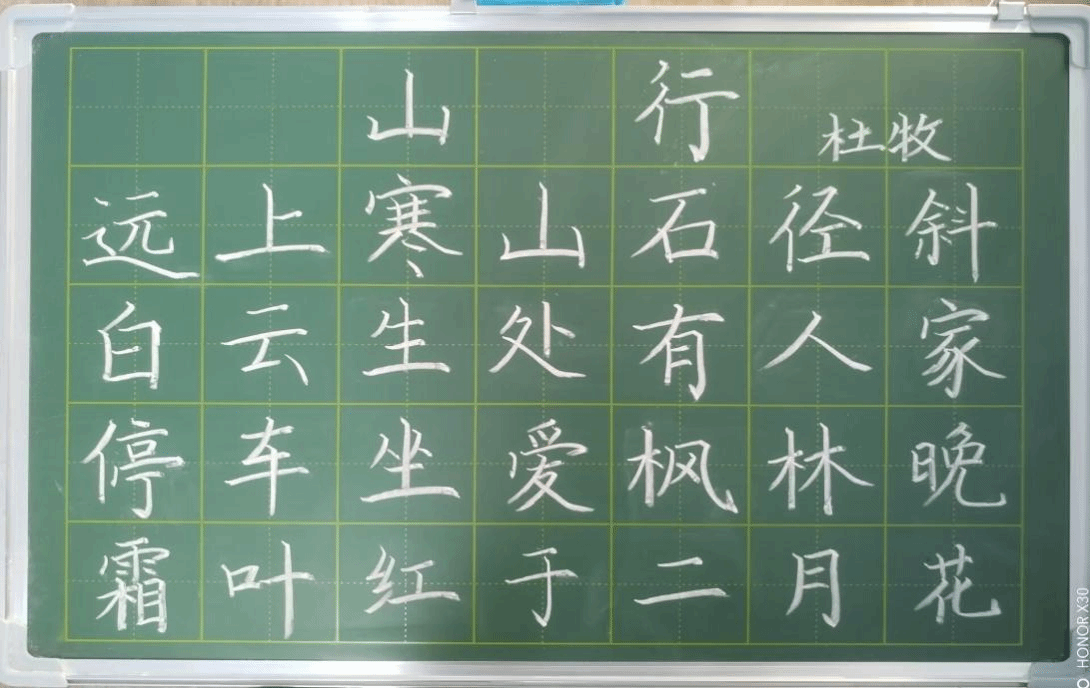 山行
杜牧
远上寒山石径斜
白云生处有人家
停车坐爱枫林晚
霜叶红于二月花
HONOR X30